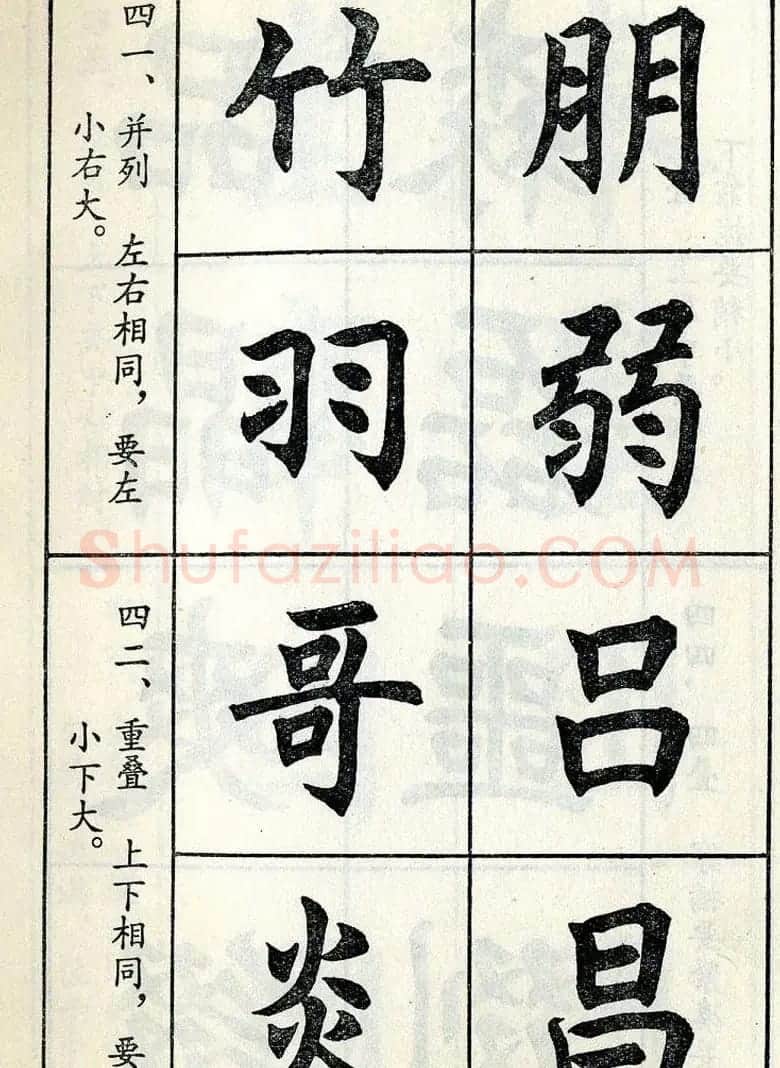 四一、并列 左右相同，要左
小右大。
竹朋
羽弱
四二、重叠 上下相同，要
小下大。
哥吕
炎昌
Shufaziliao.COM